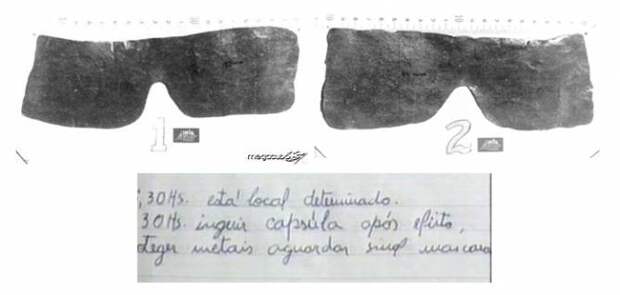 1 2
,30Hs. está local determinado.
30Hs. inguir capsúla após efeito,
oteger metais aguardar sinal mascara